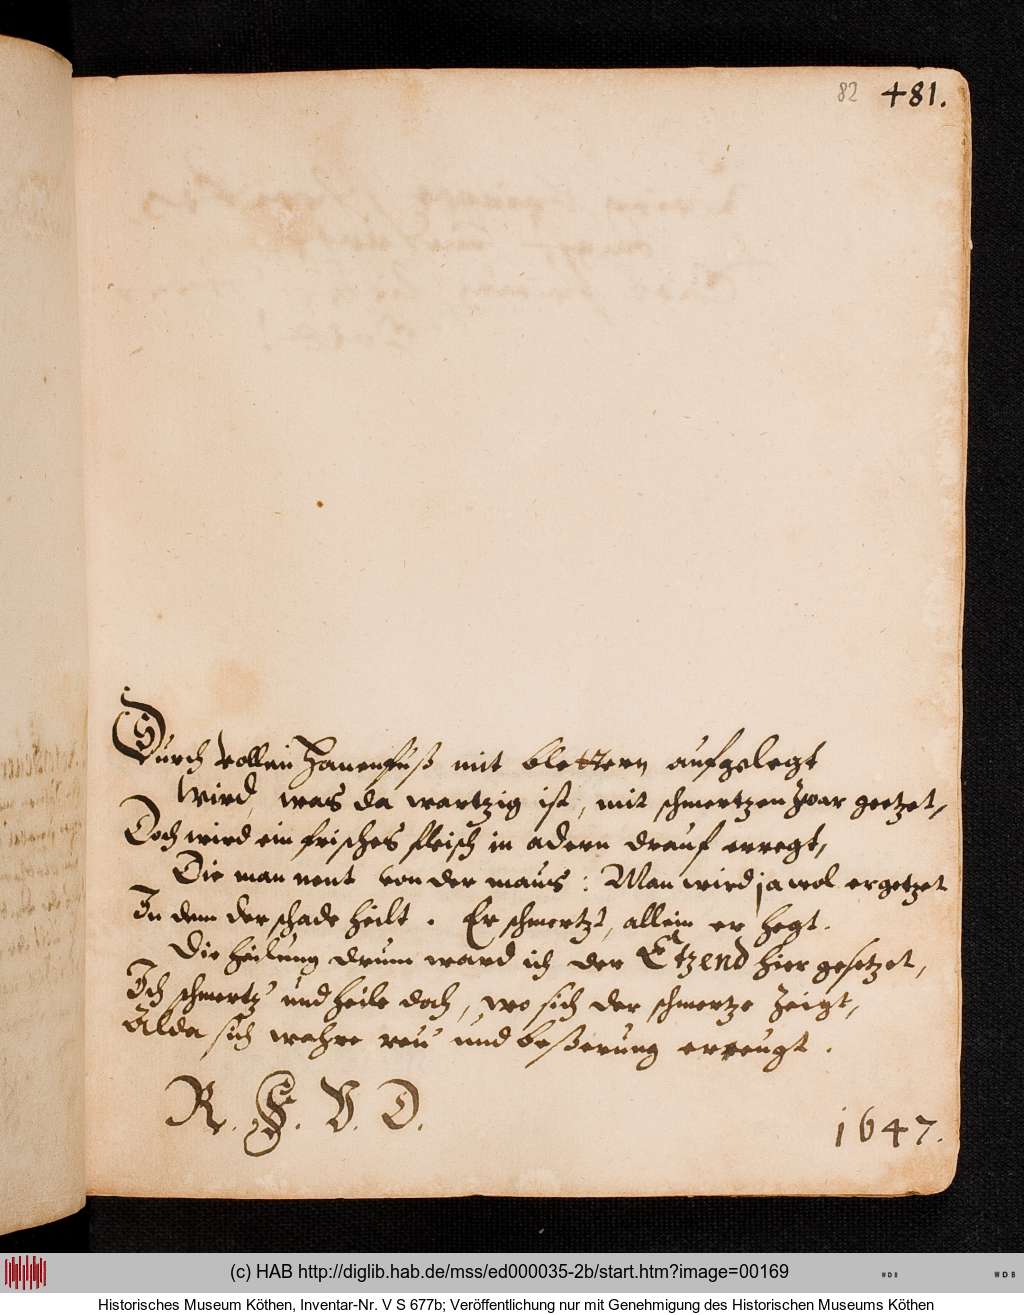 82 481.
Durch vollen Hanenfuß mit blettern aufgelegt
Wird, was da wartzig ist, mit schmertzen zwar geetzet,
Doch wird ein frisches fleisch in adern drauf erregt,
Die man nent von der maus: Man wird ja wol ergetzet
In dem der schade heilt. Er schmertzt, allein er hegt.
Die heilung drum ward ich der Etzend hier gesetzet,
Ich schmertz' und heile doch, wo sich der schmertze zeigt,
Alda sich wahre reu' und beßerung erreugt.
R. F. V. D.
1647.
(c) HAB http://diglib.hab.de/mss/ed000035-2b/start.htm?image=00169
WDB WDB
Historisches Museum Köthen, Inventar-Nr. V S 677b; Veröffentlichung nur mit Genehmigung des Historischen Museums Köthen